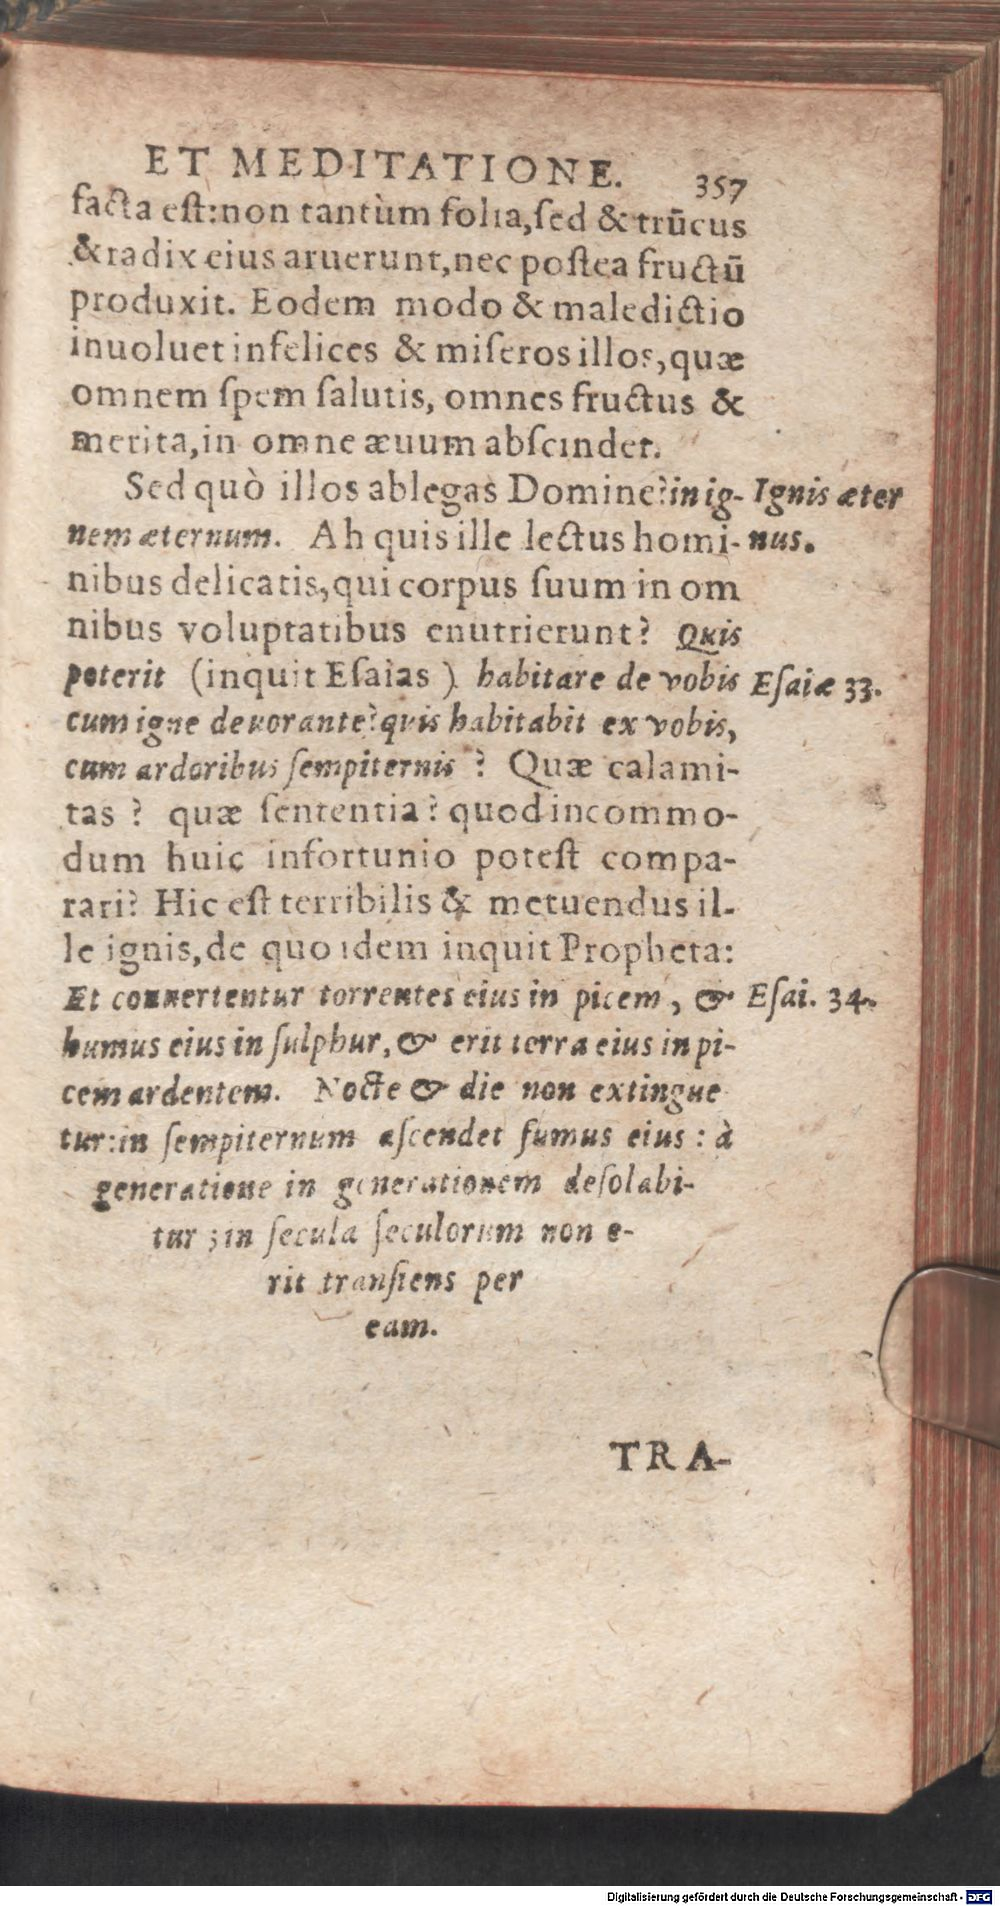 ET MEDITATIONE. 357
facta est:non tantùm folia,sed & trũcus
& radix eius aruerunt,nec postea fructũ
produxit. Eodem modo & maledictio
inuoluet infelices & miseros illos,quæ
omnem spem salutis, omnes fructus &
merita,in omne æuum abscindet.
Sed quò illos ablegas Domine?in ig-
nem æternum. Ah quis ille lectus homi-
nibus delicatis,qui corpus suum in om
nibus voluptatibus enutrierunt? Quis
poterit (inquit Esaias) habitare de vobis
cum igne deuorante?quis habitabit ex vobis,
cum ardoribus sempiternis ? Quæ calami-
tas ? quæ sententia? quod incommo-
dum huic infortunio potest compa-
rari? Hic est terribilis & metuendus il-
le ignis,de quo idem inquit Propheta:
Et conuertentur torrentes eius in picem, &
humus eius in sulphur, & erit terra eius in pi-
cem ardentem. Nocte & die non extingue
tur:in sempiternum ascendet fumus eius : à
generatione in generationem desolabi-
tur ; in secula seculorum non e-
rit transiens per
eam.
TRA-
Ignis æter
nus.
Esaiæ 33.
Esai. 34.
Digitalisierung gefördert durch die Deutsche Forschungsgemeinschaft - DFG